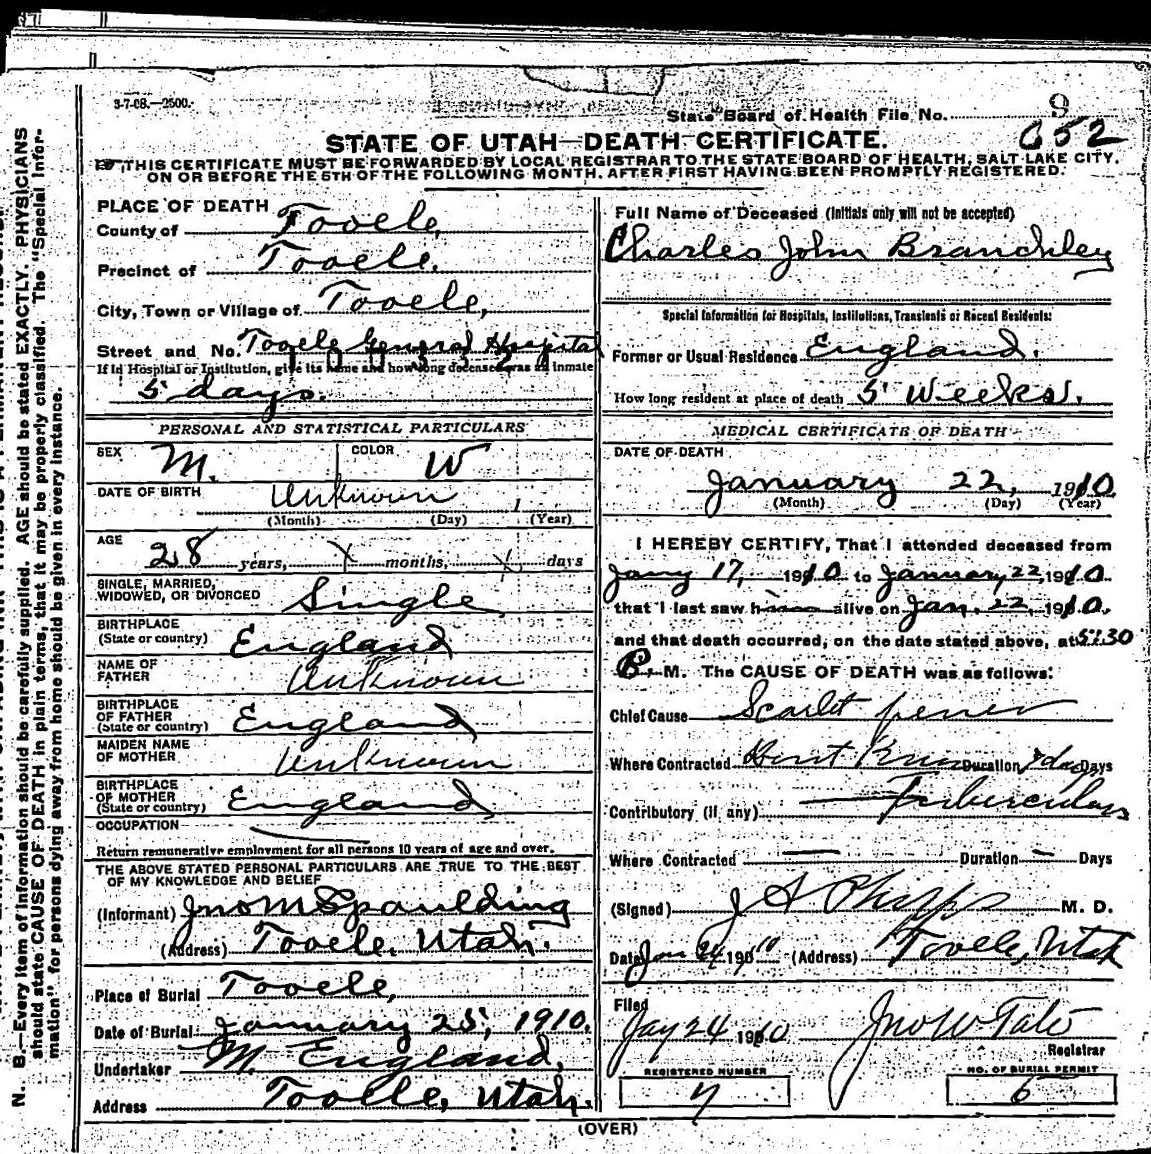 3-7-08.—2500.
State Board of Health File No. 9
652
STATE OF UTAH—DEATH CERTIFICATE.
THIS CERTIFICATE MUST BE FORWARDED BY LOCAL REGISTRAR TO THE STATE BOARD OF HEALTH, SALT LAKE CITY,
ON OR BEFORE THE 5TH OF THE FOLLOWING MONTH, AFTER FIRST HAVING BEEN PROMPTLY REGISTERED.
N. B.—Every item of information should be carefully supplied. AGE should be stated EXACTLY. PHYSICIANS
should state CAUSE OF DEATH in plain terms, that it may be properly classified. The "Special Infor-
mation" for persons dying away from home should be given in every instance.
PLACE OF DEATH
County of Tooele,
Precinct of Tooele.
City, Town or Village of Tooele,
Street and No. Tooele General Hospital
If in Hospital or Institution, give its name and how long deceased was an inmate
5 days.
PERSONAL AND STATISTICAL PARTICULARS
SEX M. COLOR W
DATE OF BIRTH Unknown
(Month) (Day) (Year)
AGE
28 years, months, days
SINGLE, MARRIED,
WIDOWED, OR DIVORCED Single
BIRTHPLACE
(State or country) England
NAME OF
FATHER Unknown
BIRTHPLACE
OF FATHER
(State or country) England
MAIDEN NAME
OF MOTHER Unknown
BIRTHPLACE
OF MOTHER
(State or country) England
OCCUPATION
Return remunerative employment for all persons 10 years of age and over.
THE ABOVE STATED PERSONAL PARTICULARS ARE TRUE TO THE BEST
OF MY KNOWLEDGE AND BELIEF
(Informant) Jno M Spaulding
(Address) Tooele, Utah.
Place of Burial Tooele,
Date of Burial January 25, 1910.
Undertaker M. England,
Address Tooele, Utah.
Full Name of Deceased (Initials only will not be accepted)
Charles John Branchley
Special Information for Hospitals, Institutions, Transients or Recent Residents:
Former or Usual Residence England.
How long resident at place of death 5 Weeks.
MEDICAL CERTIFICATE OF DEATH
DATE OF DEATH
January 22, 1910.
(Month) (Day) (Year)
I HEREBY CERTIFY, That I attended deceased from
Jany 17, 1910 to January 22, 1910.
that I last saw him alive on Jan. 22, 1910.
and that death occurred, on the date stated above, at 5:30
P. M. The CAUSE OF DEATH was as follows:
Chief Cause Scarlet fever
Where Contracted Dont Know Duration 7 days Days
Contributory (if any) Tuberculosis
Where Contracted — Duration — Days
(Signed) J A Phipps M. D.
Date Jan 24 1910 (Address) Tooele, Utah
Filed
Jay 24 1910 Jno W Tate
Registrar
REGISTERED NUMBER NO. OF BURIAL PERMIT
7 6
(OVER)